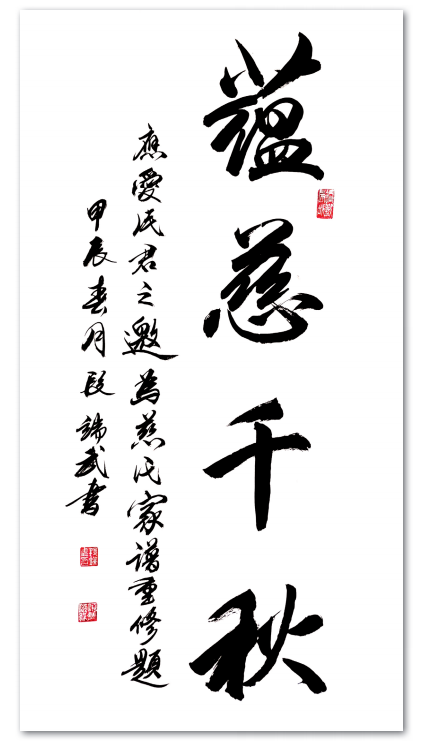 蕴慈千秋
應愛民君之邀為慈氏家譜重修題
甲辰春月段端武書